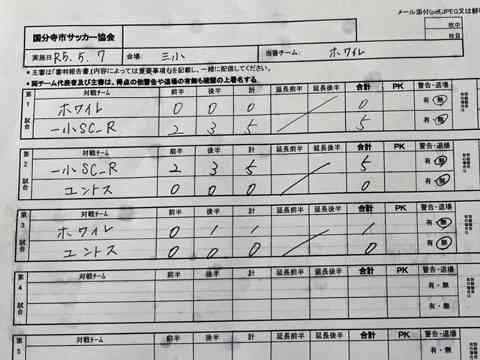 メール添付(pdf,JPEG又は鮮
国分寺市サッカー協会
実施日 R5.5.7 会場: 三小 当番チーム: ホワイレ
*主審は「審判報告書」(内容によっては重要事項)を記載し、一緒に配信してください。
*両チーム代表者及び主審は、得点の他警告や退場の有無も確認の上署名する
第1試合 対戦チーム 前半 後半 計 延長前半 延長後半 合計 PK 警告・退場
ホワイレ 0 0 0 0 有・無
一小SC_R 2 3 5 5 有・無
第2試合 対戦チーム 前半 後半 計 延長前半 延長後半 合計 PK 警告・退場
一小SC_R 2 3 5 5 有・無
エントス 0 0 0 0 有・無
第3試合 対戦チーム 前半 後半 計 延長前半 延長後半 合計 PK 警告・退場
ホワイレ 0 1 1 1 有・無
エントス 0 0 0 0 有・無
第4試合 対戦チーム 前半 後半 計 延長前半 延長後半 合計 PK 警告・退場
有・無
有・無
第5 対戦チーム 前半 後半 計 延長前半 延長後半 合計 PK 警告・退場